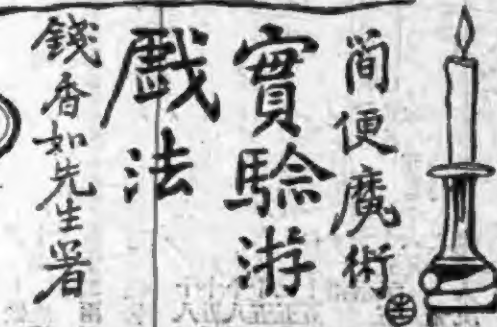 簡便魔術
實驗游
戲法
錢香如先生署